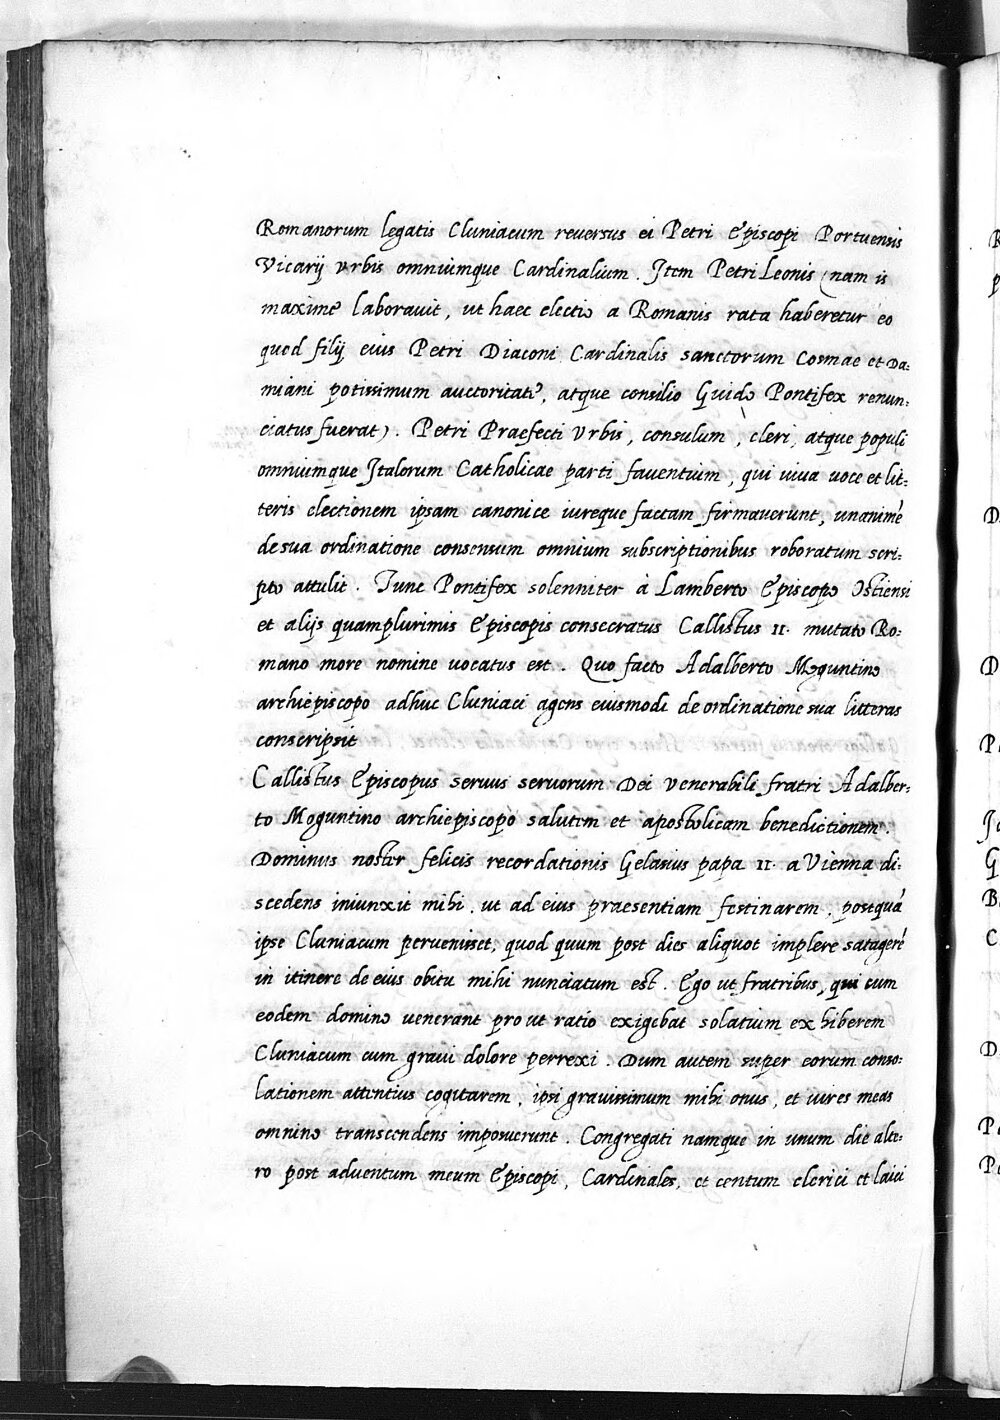 Romanorum legatis Cluniacum reversus ei Petri Episcopi Portuensis
Vicarij vrbis omniumque Cardinalium. Item Petri Leonis (nam is
maxime laboravit, ut haec electio a Romanis rata haberetur eo
quod filij eius Petri Diaconi Cardinalis sanctorum Cosmae et Da:
miani potissimum auctoritate, atque consilio Guido Pontifex renun:
ciatus fuerat). Petri Praefecti Vrbis, consulum, cleri, atque populi
omniumque Italorum Catholicae parti faventium, qui viva voce et lit:
teris electionem ipsam canonice iureque factam firmaverunt, unanimē
de sua ordinatione consensum omnium subscriptionibus roboratum scri:
pto attulit. Tunc Pontifex solenniter à Lamberto Episcopo Ostiensi
et alijs quamplurimis Episcopis consecratus Callistus II. mutato Ro:
mano more nomine vocatus est. Quo facto Adalberto Moguntino
archiepiscopo adhuc Cluniaci agens eiusmodi de ordinatione sua litteras
conscripsit
Callistus Episcopus servus servorum Dei venerabili fratri Adalber:
to Moguntino archiepiscopo salutem et apostolicam benedictionem.
Dominus noster felicis recordationis Gelasius papa II. a Vienna di:
scedens iniunxit mihi, ut ad eius praesentiam festinarem, postquā
ipse Cluniacum pervenisset, quod quum post dies aliquot implere satagerē
in itinere de eius obitu mihi nunciatum est. Ego ut fratribus, qui cum
eodem domino venerant prout ratio exigebat solatium exhiberem
Cluniacum cum gravi dolore perrexi. Dum autem super eorum conso:
lationem attentius cogitarem, ipsi gravissimum mihi onus, et vires meas
omnino transcendens imposuerunt. Congregati namque in unum die alte:
ro post adventum meum Episcopi, Cardinales, et centum clerici et laici